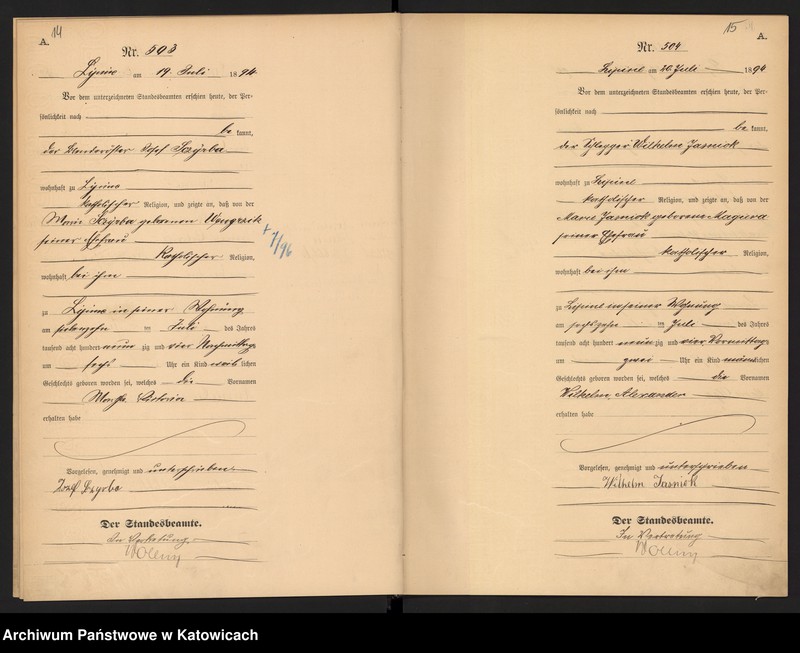 14
A.
Nr. 503
Lipine am 19. Juli 1894
Vor dem unterzeichneten Standesbeamten erschien heute, der Per-
sönlichkeit nach
be kannt,
der Josef Szyrba
wohnhaft zu Lipine
katholischer Religion, und zeigte an, daß von der
Marie Szyrba geborenen
seiner Ehefrau
+ 7/96
katholischer Religion,
wohnhaft bei ihm
zu Lipine in seiner Wohnung
am siebzehn ten Juli des Jahres
tausend acht hundert neun zig und vier Nachmittags
um sechs Uhr ein Kind weib lichen
Geschlechts geboren worden sei, welches die Vornamen
Viktoria
erhalten habe
Vorgelesen, genehmigt und unterschrieben
Josef Szyrba
Der Standesbeamte.
In Vertretung
15
A.
Nr. 504
am 20. Juli 1894
Vor dem unterzeichneten Standesbeamten erschien heute, der Per-
sönlichkeit nach
be kannt,
der Schlepper Wilhelm Jasniok
wohnhaft zu
katholischer Religion, und zeigte an, daß von der
Marie Jasniok geborene Magiera
seiner Ehefrau
katholischer Religion,
wohnhaft bei ihm
zu in seiner Wohnung
am sechszehn ten Juli des Jahres
tausend acht hundert neun zig und vier Vormittags
um zwei Uhr ein Kind männ lichen
Geschlechts geboren worden sei, welches die Vornamen
Wilhelm Alexander
erhalten habe
Vorgelesen, genehmigt und unterschrieben
Wilhelm Jasniok
Der Standesbeamte.
In Vertretung
Archiwum Państwowe w Katowicach